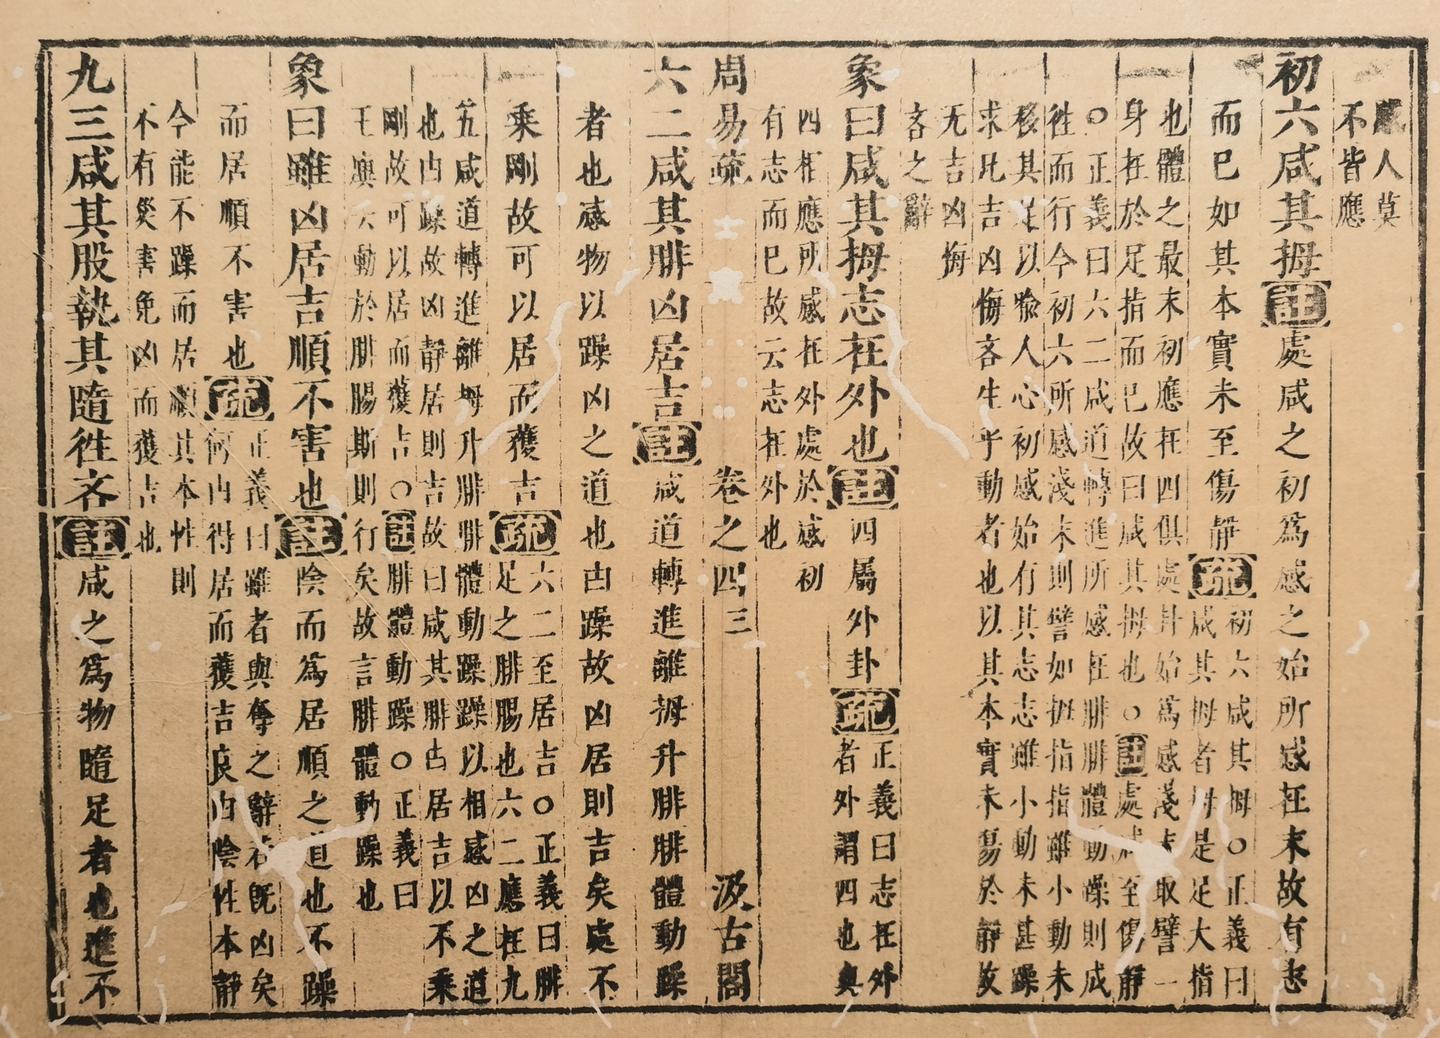 感人莫
不皆應
初六咸其拇註處咸之初爲感之始所感在末故有志
而已如其本實未至傷靜疏
初六咸其拇○正義曰
咸其拇者拇是足大指
也體之最末初應在四俱處卦始爲感淺末取譬一
身在於足指而已故曰咸其拇也○註處咸至傷靜
○正義曰六二咸道轉進所感在腓腓體動躁則成
往而行今初六所感淺末則譬如拇指指雖小動未
移其足以喩人心初感始有其志志雖小動未甚躁
求凡吉凶悔吝生乎動者也以其本實未傷於靜故
无吉凶悔
吝之辭
象曰咸其拇志在外也註四屬外卦疏
正義曰志在外
者外謂四也與
四相應所感在外處於感初
有志而已故云志在外也
周易疏 卷之四 三 汲古閣
六二咸其腓凶居吉註咸道轉進離拇升腓腓體動躁
者也感物以躁凶之道也由躁故凶居則吉矣處不
乘剛故可以居而獲吉疏
六二至居吉○正義曰腓
足之腓腸也六二應在九
五咸道轉進離拇升腓腓體動躁躁以相感凶之道
也由躁故凶靜居則吉故曰咸其腓凶居吉以不乘
剛故可以居而獲吉○註腓體動躁○正義曰
王廙云動於腓腸斯則行矣故言腓體動躁也
象曰雖凶居吉順不害也註陰而爲居順之道也不躁
而居順不害也疏
正義曰雖者與奪之辭若旣凶矣
何由得居而獲吉良由陰性本靜
今能不躁而居順其本性則
不有災害免凶而獲吉也
九三咸其股執其隨往吝註咸之爲物隨足者也進不